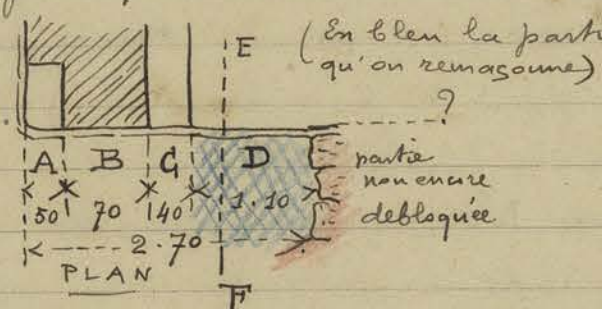 E (En bleu la partie
qu'on remaçonne)
?
A B C D
partie
non encore
debloquée
50 70 40 1.10
2.70
PLAN
F